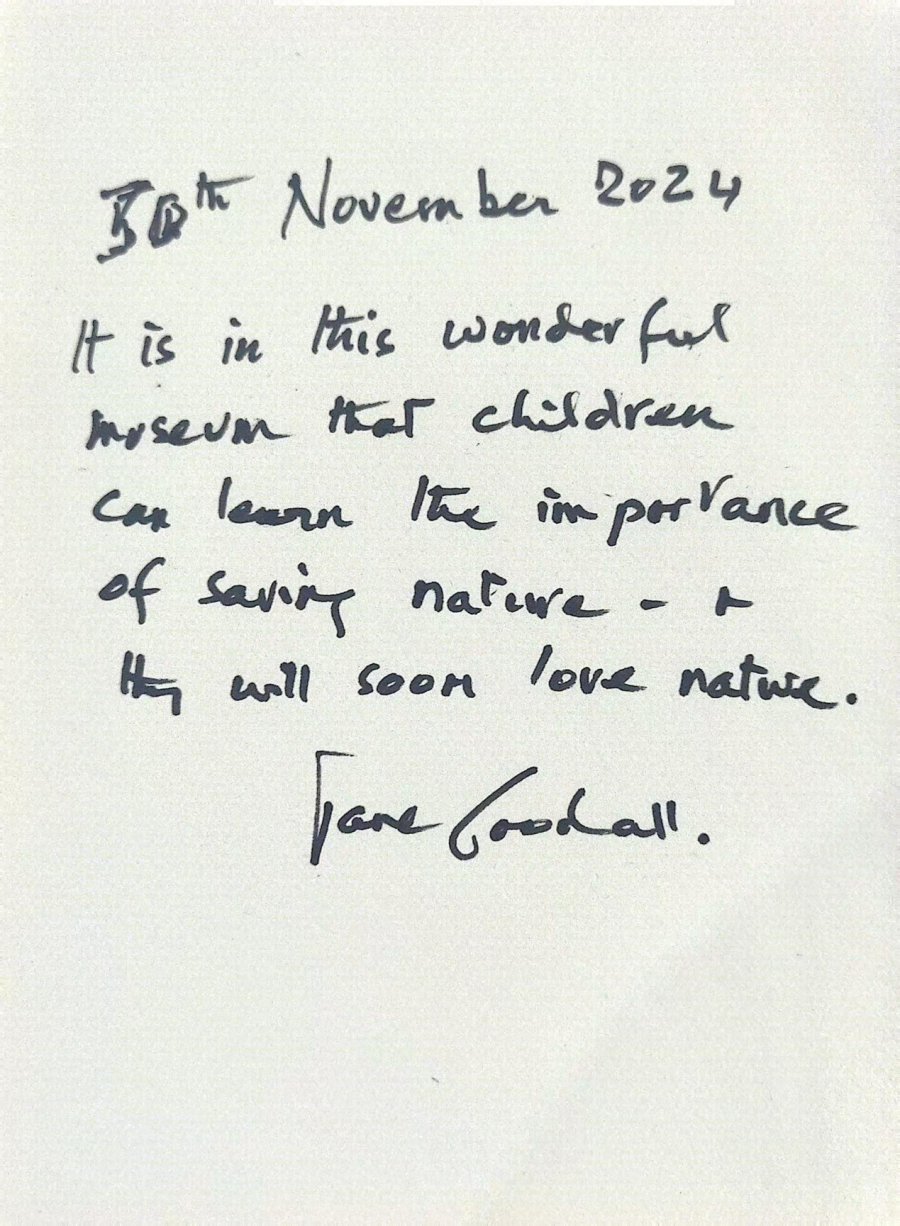 30th November 2024
It is in this wonderful
museum that children
can learn the importance
of saving nature - &
they will soon love nature.
Jane Goodall.